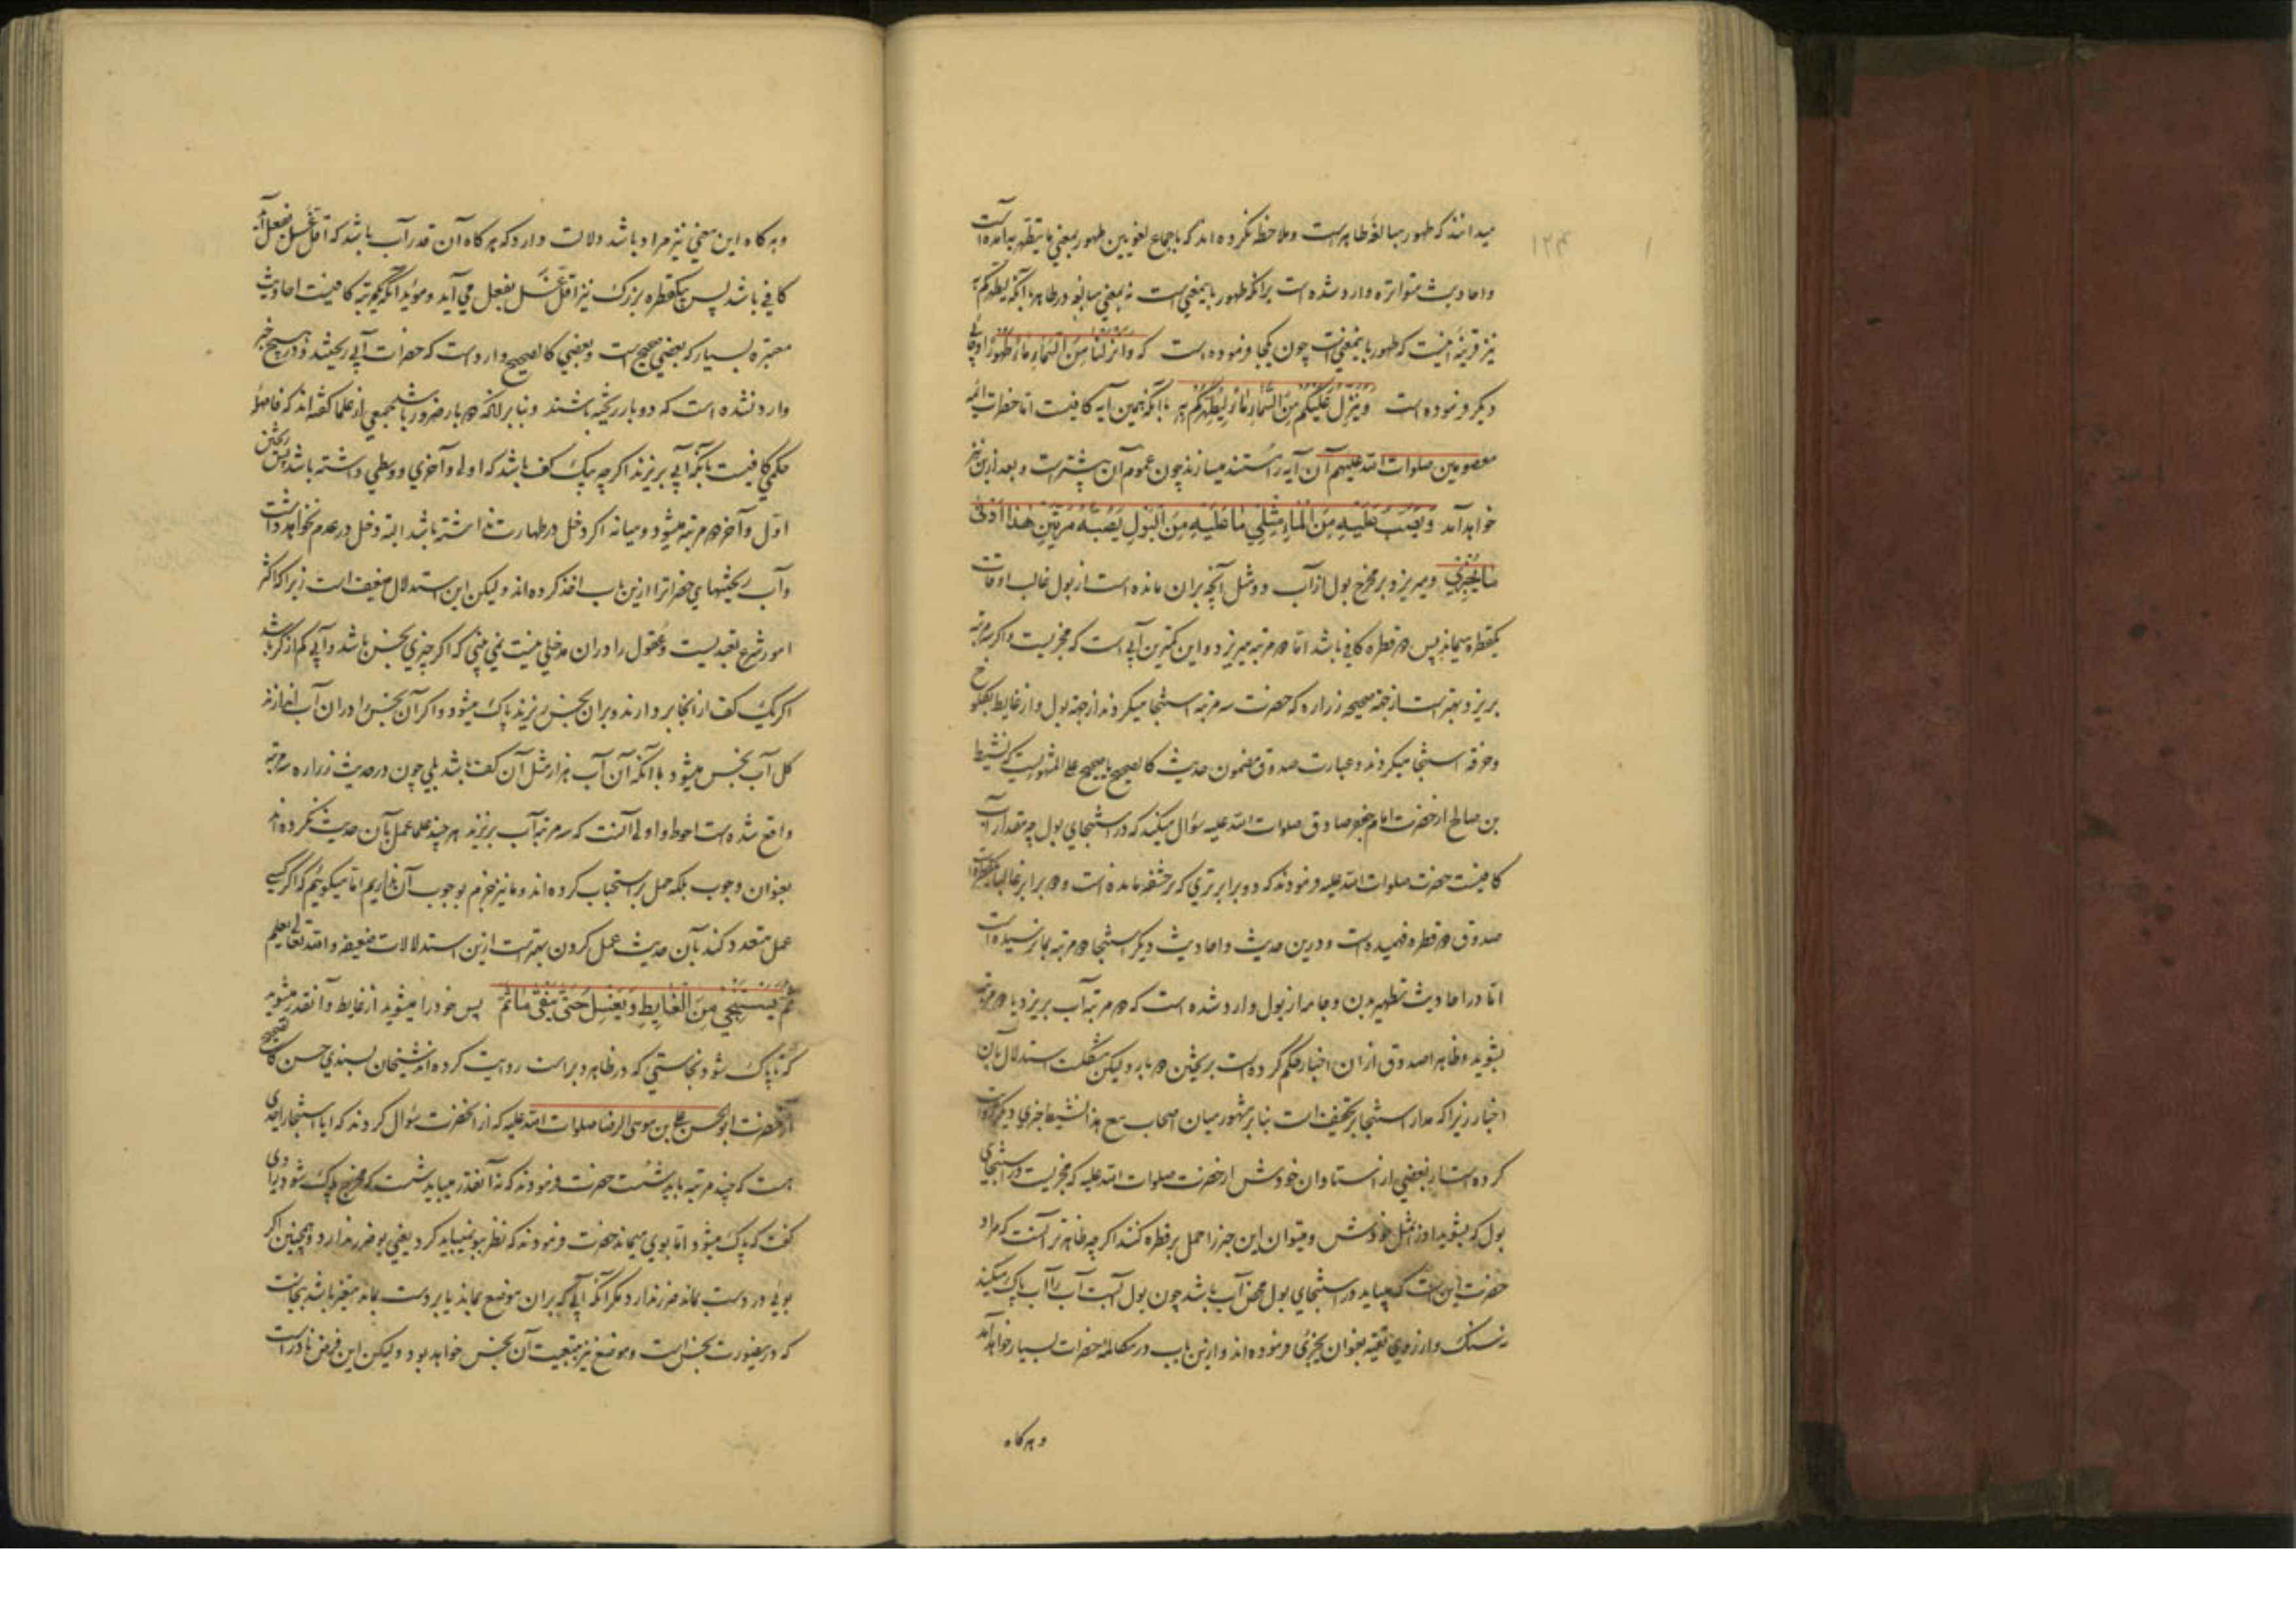 میدانند که طهور مبالغهٔ طاهرست و ملاحظه نکرده‌اند که باجماع لغویین طهور بمعنی ما یتطهر به آمده است
و احادیث متواتره وارد شده است برانکه طهور باینمعنی است نه بمعنی مبالغه در طاهر با آنکه لیطهرکم به
نیز قرینهٔ اینست که طهور باینمعنی است چون یکجا فرموده است که وَاَنْزَلْنا مِنَ السَّماءِ ماءً طَهُورًا و جای
دیگر فرموده است وَیُنَزِّلُ عَلَیْکُم مِنَ السَّماءِ ماءً لِیُطَهِّرَکُم بِه با آنکه همین آیه کافیست اما حضرات ائمه
معصومین صلوات الله علیهم آن آیه را مستند میسازند چون عموم آن بیشترست و بعد ازین نیز
خواهد آمد وَیَصُبُّ عَلَیْهِ مِنَ الْماءِ مِثْلَیْ ما عَلَیْهِ مِنَ الْبَوْلِ یَصُبُّهُ مَرَّتَیْنِ هٰذا اَدْنیٰ
ما یُجْزِی و میریزد بر مخرج بول از آب دو مثل آنچه بران مانده است از بول غالب اوقات
یکقطره میماند پس دو قطره کافی باشد اما دو مرتبه میریزد و این کمترین آبی است که مجزیست و اگر سه مرتبه
بریزد بهترست از جهة صحیحه زراره که حضرت سه مرتبه استنجا میکردند از جهة بول و از غایط بکلوخ
و خرقه استنجا میکردند و عبارت صدوق مضمون حدیث کالصحیح یا صحیح علی المشهوریست که نشیط
بن صالح از حضرت امام جعفر صادق صلوات الله علیه سؤال میکند که در استنجای بول چه مقدار آب
کافیست حضرت صلوات الله علیه فرمودند که دو برابر تری که بر حشفه مانده است و دو برابر غالبا
صدوق دو قطره فهمیده است و درین حدیث و احادیث دیگر استنجا دو مرتبه بما نرسیده است
اما در احادیث تطهیر بدن و جامه از بول وارد شده است که دو مرتبه آب بریزد یا دو مرتبه
بشوید و ظاهرا صدوق از ان اخبار حکم کرده است بریختن دو بار و لیکن مشکلست استدلال بان
اخبار زیرا که مدار استنجا بر تخفیف است بنا بر مشهور میان اصحاب مع هذا نشیط خبری دیگر روایت
کرده است از بعضی از استادان خودش از حضرت صلوات الله علیه که مجزیست در استنجای
بول که بشوید او را بمثل خودش و میتوان این خبر را حمل بر قطره کنند اگر چه ظاهرتر آنست که مراد
حضرت این است که میباید در استنجای بول محض آب باشد چون بول آبست آب را آب پاک میکند
نه سنک و از روی تقیه بعنوان یجزئ فرموده‌اند و ازین باب در مکالمهٔ حضرات بسیار خواهد آمد
و هرگاه
و هرگاه این معنی نیز مراد باشد دلالت دارد که هرگاه آن قدر آب باشد که اقل غسل بفعل آید
کافی باشد پس بیکقطره بزرک نیز اقل غسل بفعل می آید و مؤید آنکه یکمرتبه کافیست احادیث
معتبره بسیار که بعضی صحیح است و بعضی کالصحیح وارد است که حضرات آبی ریختند و در هیچ خبر
وارد نشده است که دو بار ریخته باشند و بنا بر آنکه دو بار ضرور باشد جمعی از علما گفته‌اند که فاصلهٔ
حکمی کافیست بآنکه آبی بریزند اگر چه یک کف باشد که اولی و آخری و وسطی داشته باشد پس ریختن
اول و آخر دو مرتبه میشود و میانه اگر دخل در طهارت نداشته باشد البته دخل در عدم نخواهد داشت
و آب ریختنهای حضراترا ازین باب اخذ کرده‌اند و لیکن این استدلال ضعیف است زیرا که اکثر
امور شرع تعبدیست و عقول را دران مدخلی نیست نمی بینی که اگر چیزی نجس باشد و آبی کم از کر باشد
اگر یک کف از انجا بر دارند و بران نجس ریزند پاک میشود و اگر آن نجس را دران آب اندازند
کل آب نجس میشود با آنکه آن آب هزار مثل آن کف باشد بلی چون در حدیث زراره سه مرتبه
واقع شده است احوط و اولی آنست که سه مرتبه آب بریزند هر چند علما عمل بآن حدیث نکرده‌اند
بعنوان وجوب بلکه حمل بر استحباب کرده‌اند و ما نیز جزم بوجوب آن نداریم اما میگوئیم که اگر کسی
عمل متعدد کند بآن حدیث عمل کردن بهترست ازین استدلالات ضعیفه و الله تعالی یعلم
ثُمَّ یَسْتَنْجِی مِنَ الْغایِطِ وَیَغْسِلُ حَتّیٰ یَنْقیٰ ما ثَمَّ پس خود را میشوید از غایط و آنقدر میشوید
که تا پاک شود نجاستی که در ظاهر دبر است روایت کرده‌اند شیخان بسندی حسن کالصحیح
از حضرت ابو الحسن علی بن موسی الرضا صلوات الله علیه که از انحضرت سؤال کردند که ایا استنجا را حدی
هست که چند مرتبه باید شست حضرت فرمودند که نه آنقدر میباید شست که مخرج پاک شود راوی
گفت که پاک میشود اما بوی میماند حضرت فرمودند که نظر ببو نمیباید کرد یعنی بو ضرر ندارد و همچنین اگر
بوئی در دست بماند ضرر ندارد مگر آنکه آبی که بران موضع بماند یا بر دست بماند متغیر باشد بنجاست
که درینصورت نجس است و موضع نیز بتبعیت آن نجس خواهد بود و لیکن این فرض نادر است